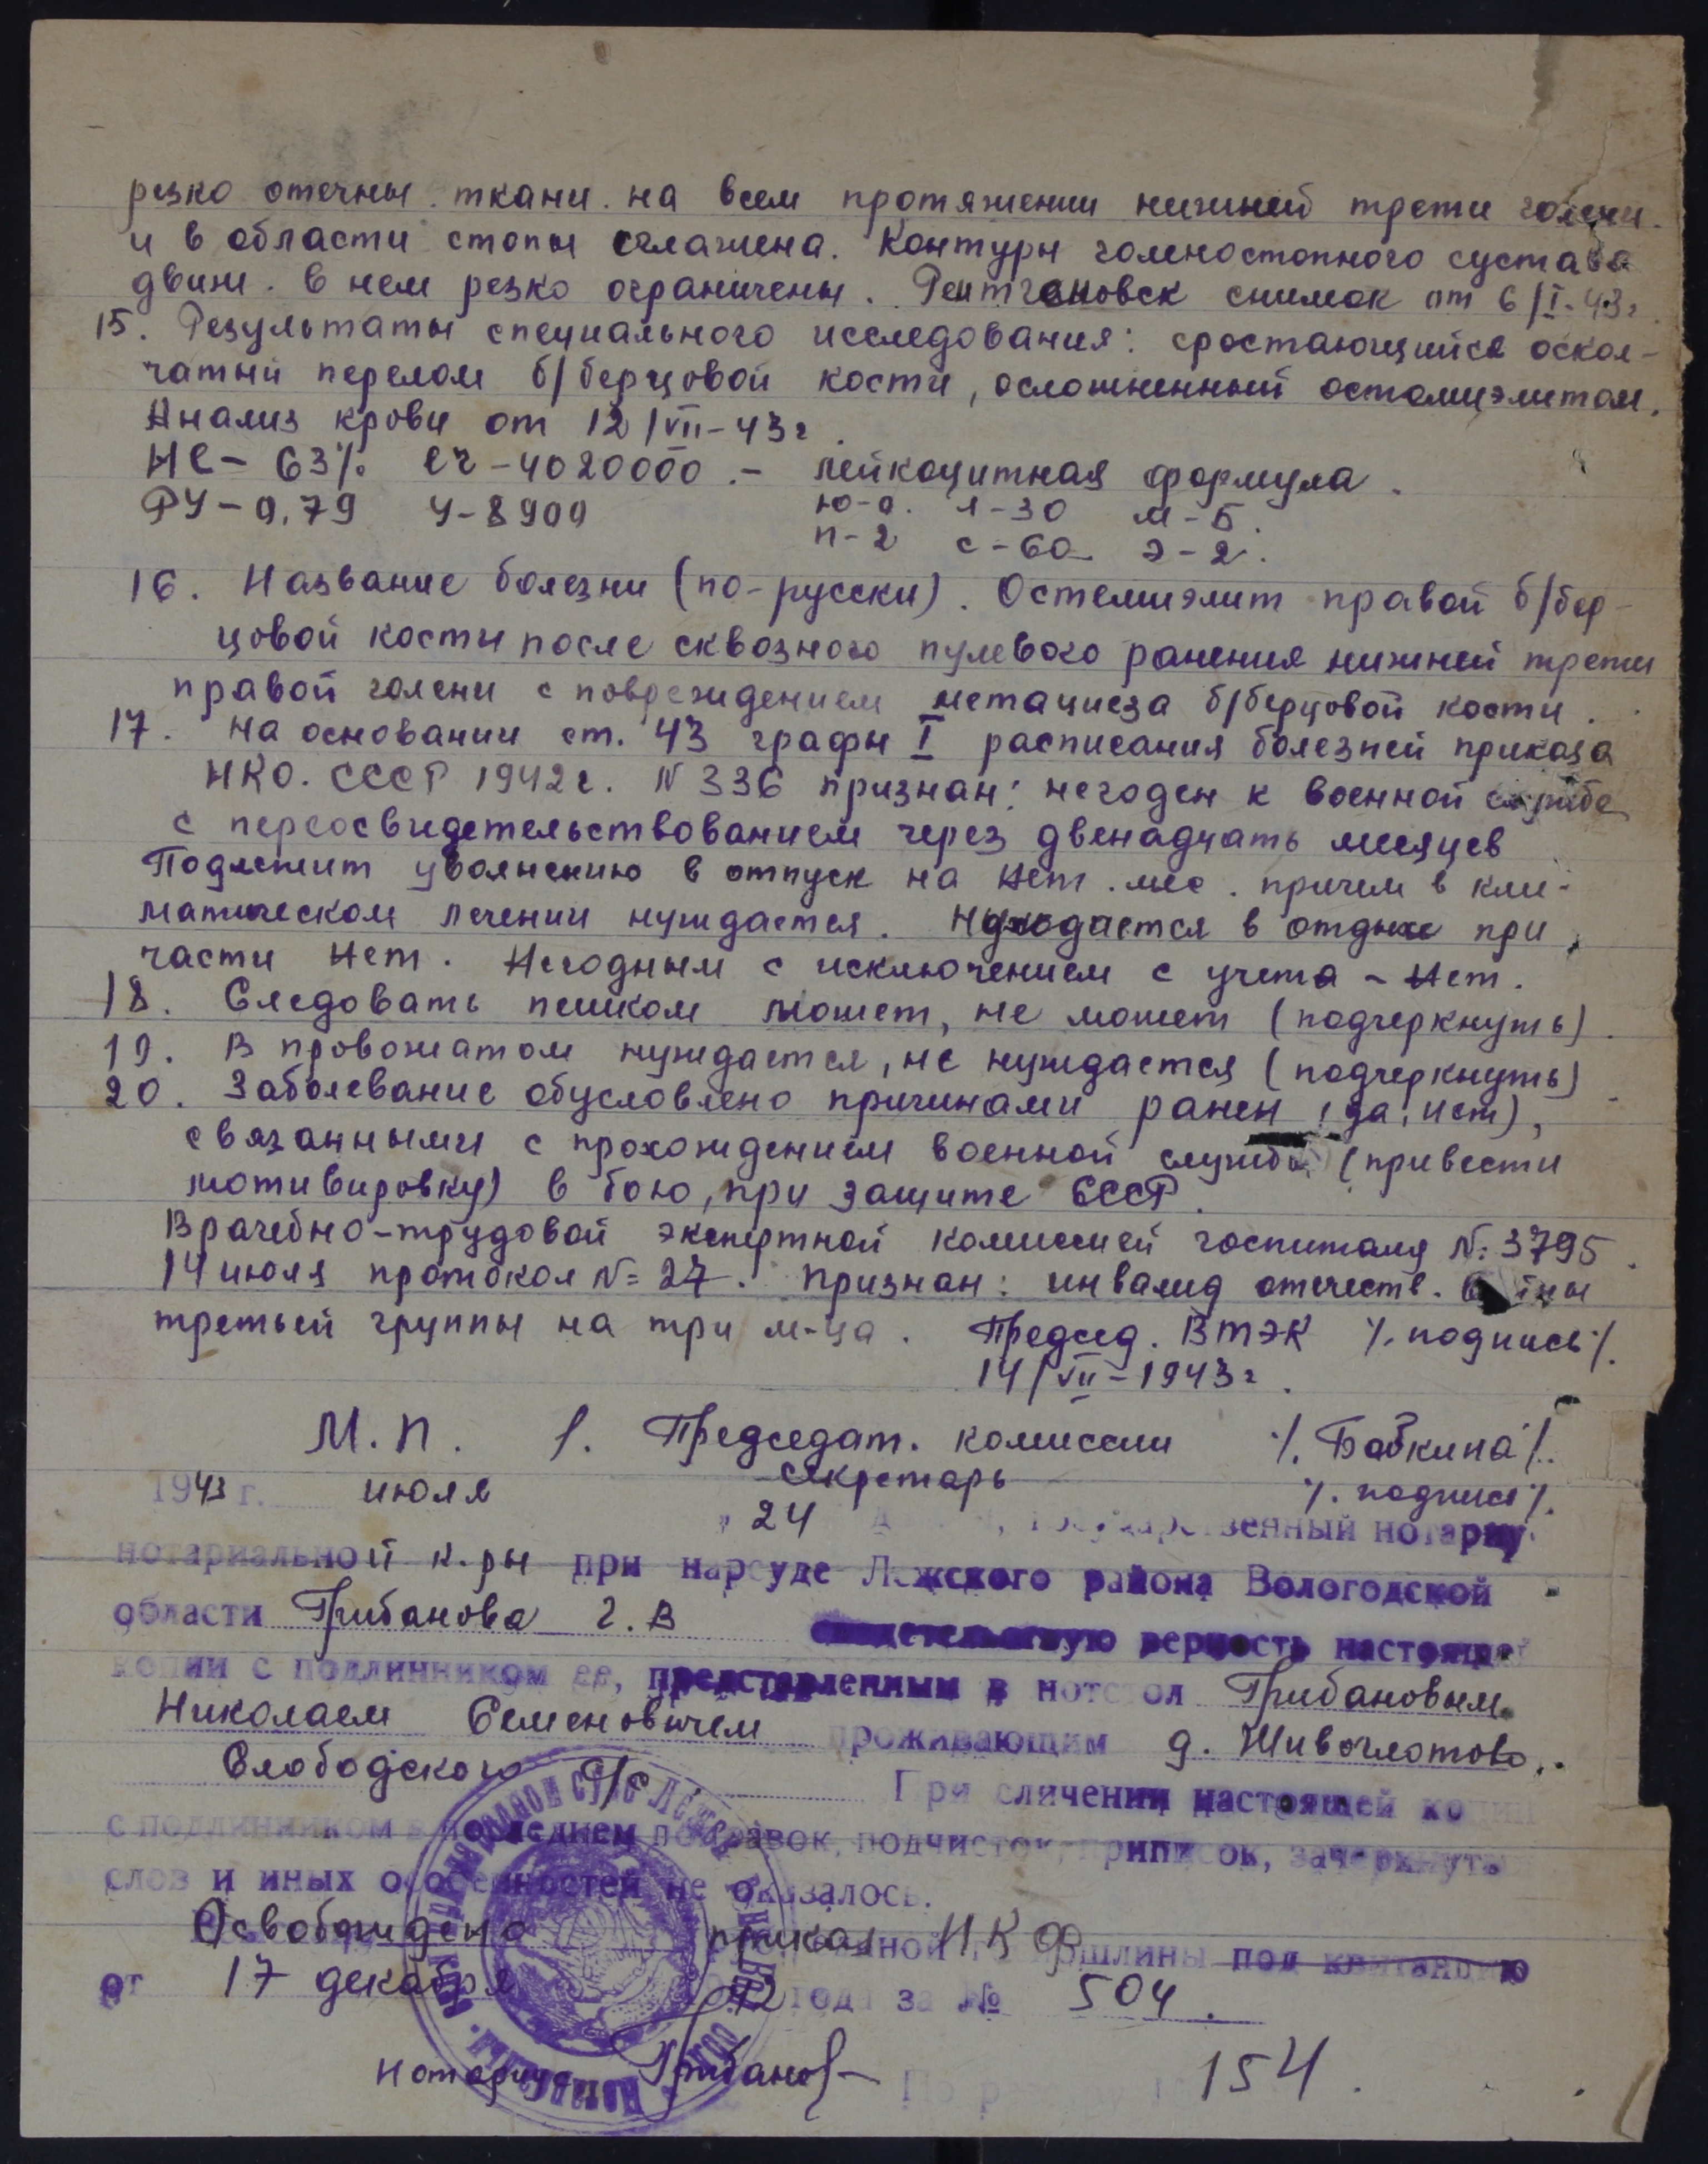 резко отечны. ткани. на всем протяжении нижней трети голени.
и в области стопы сглажена. Контуры голеностопного сустава
движ. в нем резко ограничены. Рентгеновск снимок от 6/I-43г.
15. Результаты специального исследования: сростающийся оскол-
чатый перелом б/берцовой кости, осложненный остомиэлитом.
Анализ крови от 12/VII-43г.
НС - 63% еч - 4020000. - лейкоцитная формула.
РУ - 0,79 У - 8900 ю-о. л-30 м-Б.
п-2 с-60 э-2.
16. Название болезни (по-русски). Остемиэлит правой б/бер-
цовой кости после сквозного пулевого ранения нижней трети
правой голени с повреждением метациеза б/берцовой кости.
17. На основании ст. 43 графы I расписания болезней приказа
НКО. СССР 1942г. N 336 признан: негоден к военной службе
с переосвидетельствованием через двенадцать месяцев
Подлежит увольнению в отпуск на Нет. мес. причем в кли-
матическом лечении нуждается. Нуждается в отдыхе при
части Нет. Негодным с исключением с учета - Нет.
18. Следовать пешком может, не может (подчеркнуть).
19. В провожатом нуждается, не нуждается (подчеркнуть)
20. Заболевание обусловлено причинами ранен (да, нет),
связанными с прохождением военной службы (привести
мотивировку) в бою, при защите СССР.
Врачебно-трудовой экспертной комиссией госпиталя N: 3795.
14 июля протокол N= 27. Признан: инвалид отечеств. войны
третьей группы на три м-ца. Председ. ВТЭК %. подпись %.
14/VII-1943г.
М.П. Председат. комиссии %. Бабкина %.
Секретарь %. подпись %.
1943 г. июля 24 государственный нотариус
нотариальной к-ры при нарсуде Лежского района Вологодской
области Грибанова Г.В свидетельствую верность настоящей
копии с подлинником ее, представленным в нотстол Грибановым
Николаем Семеновичем проживающим д. Живоглотово
Слободского с/с При сличении настоящей копии
с подлинником в последнем поправок, подчисток, приписок, зачеркнутых
слов и иных особенностей не оказалось.
Освобождено приказ НКФ пошлины под квитанцию
от 17 декабря 42 года за № 504.
Нотариус Грибанов
154.